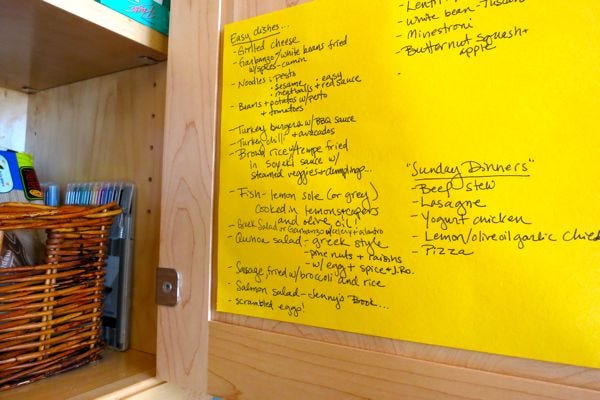 Easy dishes...
- Grilled cheese
- Garbanzo/white beans fried
w/spices - cumin
- Noodles : pesto
: sesame : easy
: meatballs + red sauce
- Beans + potatoes w/pesto
+ tomatoes
- Turkey burgers w/ BBQ sauce
- Turkey chili + avocados
- Brown rice w/ fried
in sauce w/
steamed veggies + dumplings...
- Fish - lemon sole (or grey)
cooked in lemons + capers
and olive oil!
- Greek Salad or Garbanzo w/celery + cilantro
- Quinoa salad - greek style
- pine nuts + raisins
- w/ egg + spice +
- Sausage fried w/broccoli and rice
- Salmon salad - Jenny's Book...
- scrambled eggs!
- White bean - Tuscan
- Minestroni
- Butternut squash +
apple
-
"Sunday Dinners"
- Beef stew
- Lasagne
- Yogurt chicken
- Lemon/olive oil garlic
- Pizza